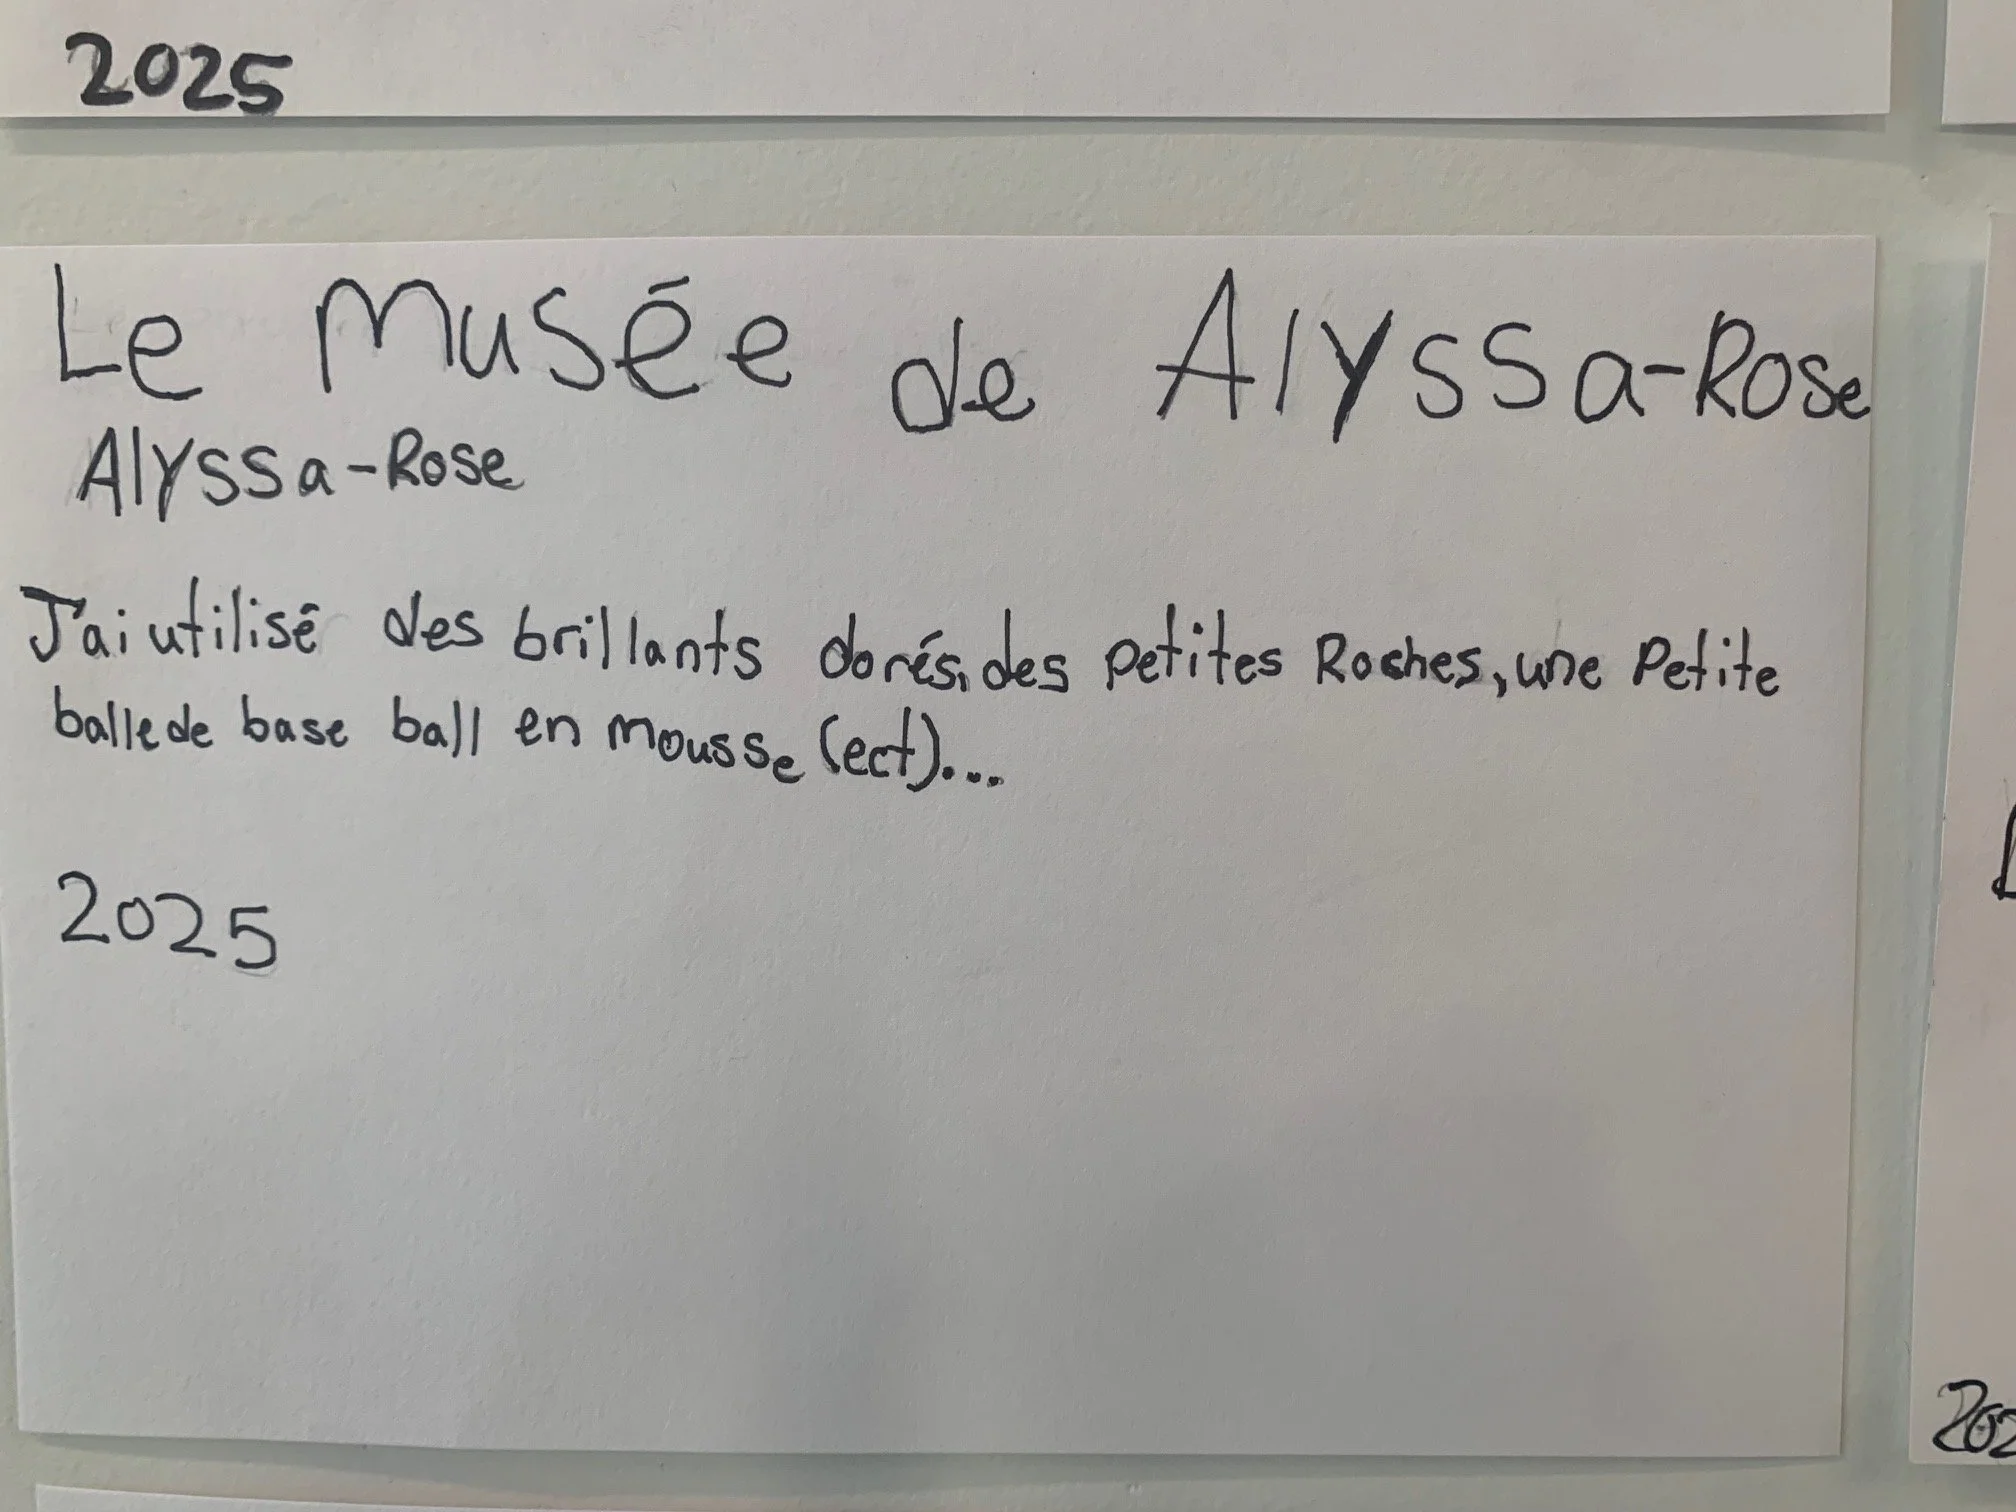 2025
Le Musée de Alyssa-Rose
Alyssa-Rose
J'ai utilisé des brillants dorés, des petites Roches, une Petite
balle de base ball en mousse (ect)...
2025